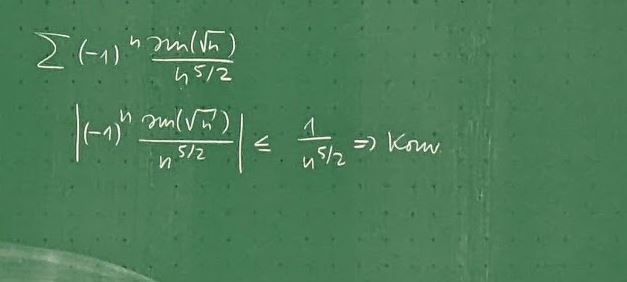 ∑ (-1)^n sin(√n) / n^{5/2}
|(-1)^n sin(√n) / n^{5/2}| ≤ 1 / n^{5/2} ⇒ Konv.